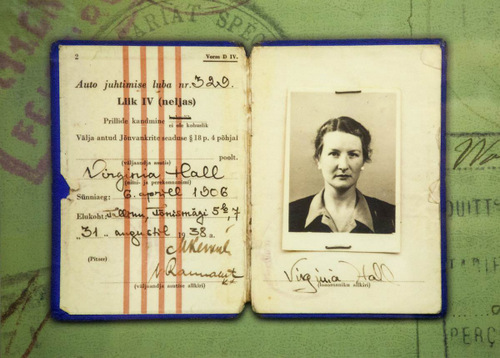 2
Vorm D IV.
Auto juhtimise luba nr. 329.
Liik IV (neljas)
Prillide kandmine
ei ole kohuslik
Välja antud Jõuvankrite seaduse § 18 p. 4 põhjal
(väljaandja asutis)
poolt.
Virginia Hall
(nimi- ja perekonnanimi)
Sünniaeg: 6. aprill 1906
Elukoht: Tallinn, Tõnismägi 5a, 7
"31" augustil 1938 a.
(Pitser)
(väljaandja asutise allkiri)
Virginia Hall
(luba­omaniku allkiri)
ARIAT SPÉC